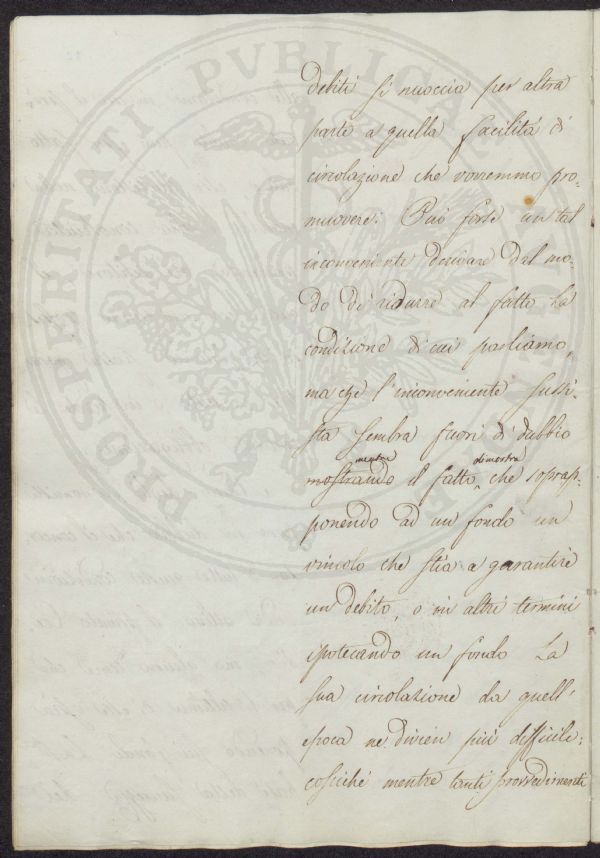 debiti si nuoccia per altra
parte a quella facilità di
circolazione che vorremmo pro-
muovere. Può forse un tal
inconveniente derivare dal mo-
do di ridurre al fatto la
condizione di cui parliamo,
ma che l'inconveniente sussi-
sta sembra fuori di dubbio
mentre dimostra
mostrando il fatto, che soprap-
ponendo ad un fondo un
vincolo che stia a garantire
un debito, o in altri termini
ipotecando un fondo la
sua circolazione da quell'
epoca ne divien più difficile:
cosiché mentre tanti provvedimenti
PROSPERITATI PVBLICAE